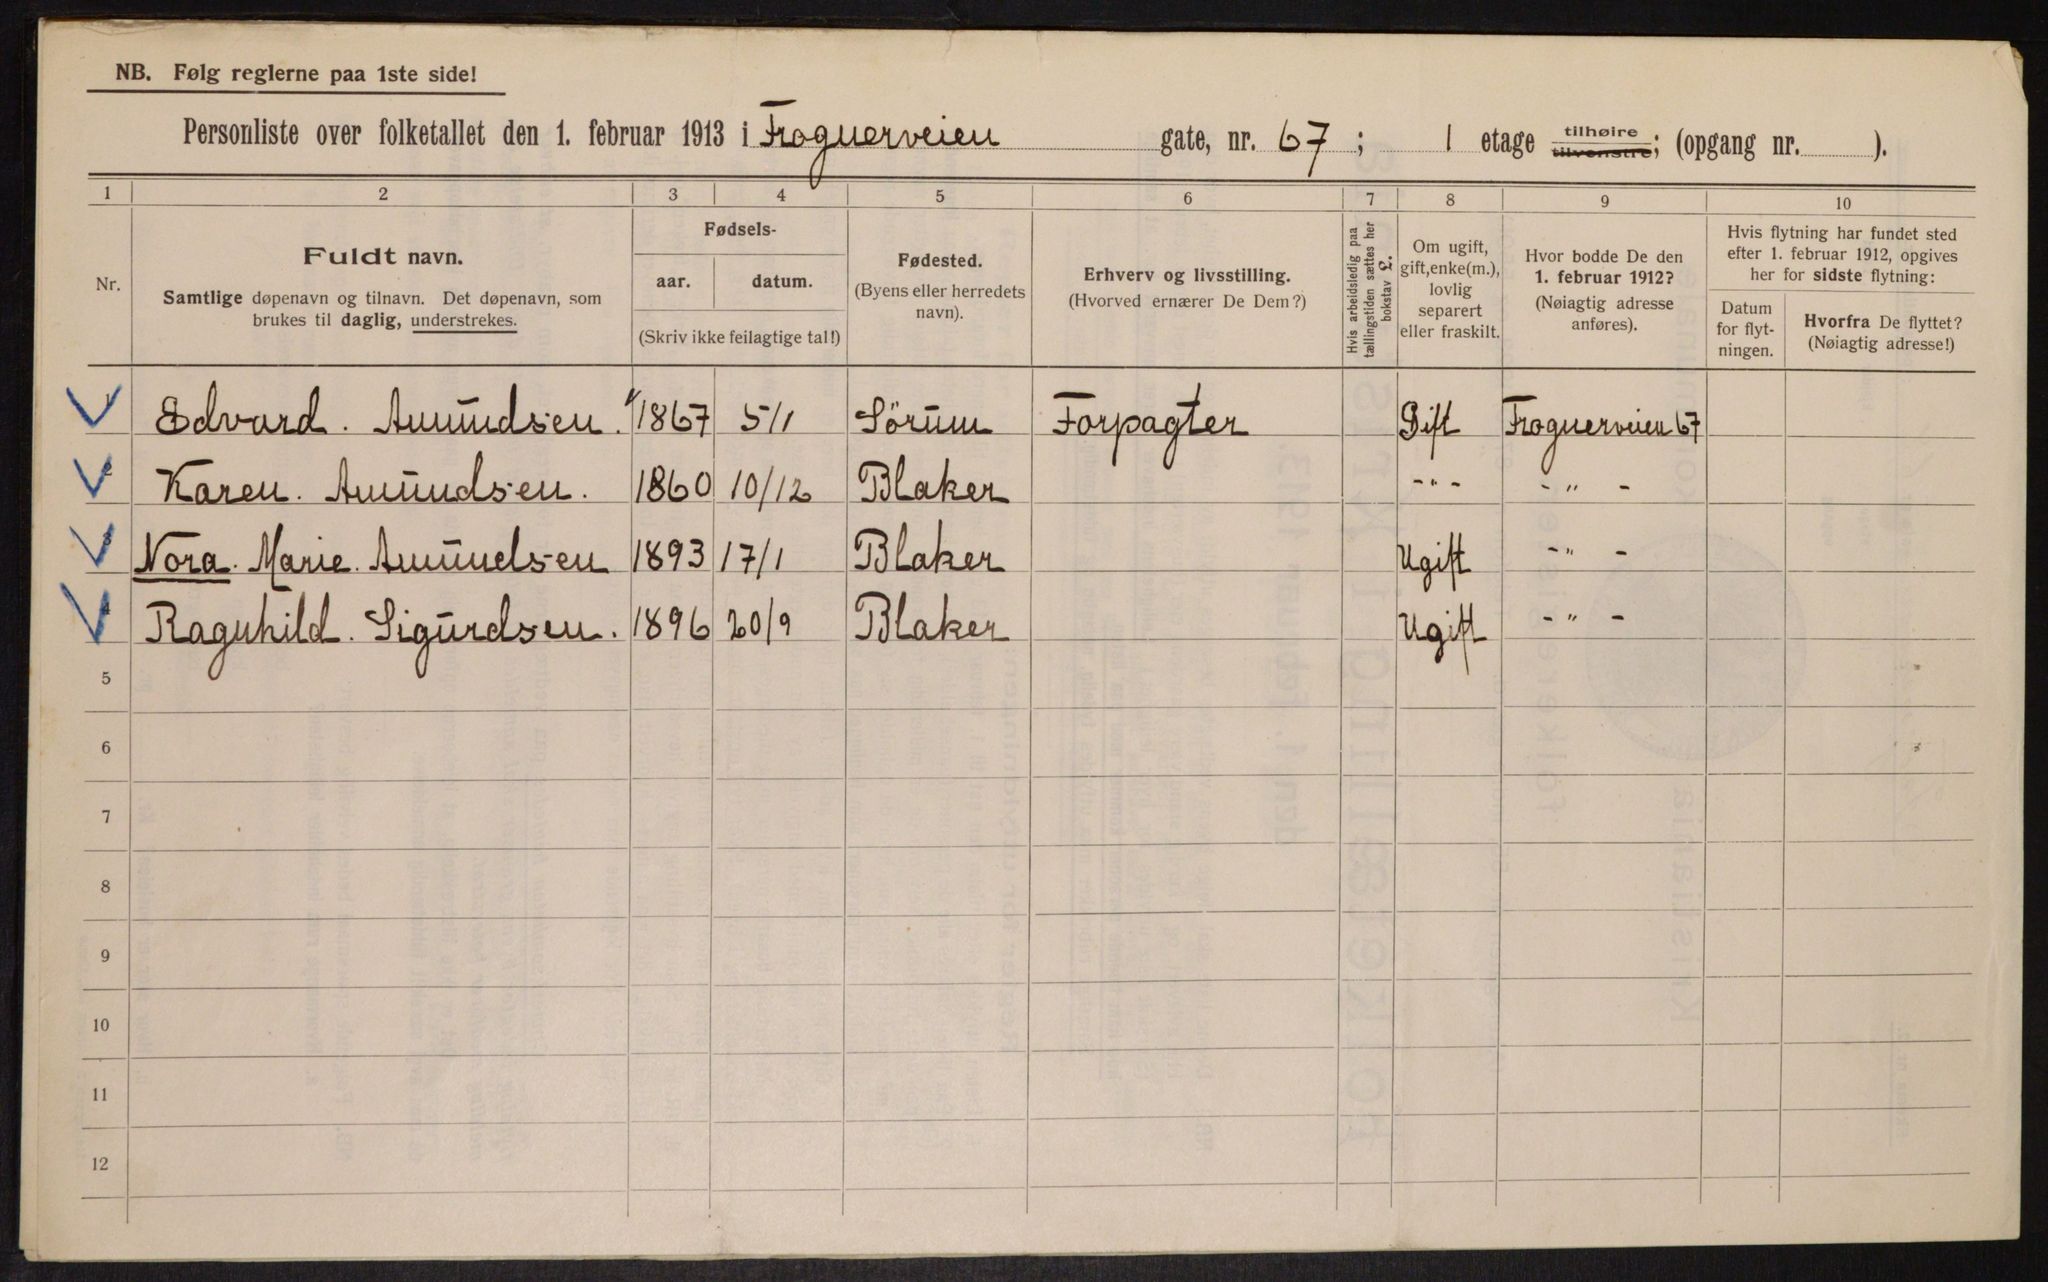 NB. Følg reglerne paa 1ste side!
Personliste over folketallet den 1. februar 1913 i Frognerveien gate, nr. 67; 1 etage tilhøire tilvenstre; (opgang nr. ).
1 2 3 4 5 6 7 8 9 10
Nr.
Fuldt navn.
Samtlige døpenavn og tilnavn. Det døpenavn, som
brukes til daglig, understrekes.
Fødsels-
aar. datum.
(Skriv ikke feilagtige tal!)
Fødested.
(Byens eller herredets
navn).
Erhverv og livsstilling.
(Hvorved ernærer De Dem?)
Hvis arbeidsledig paa
tællingstiden sættes her
bokstav L.
Om ugift,
gift, enke(m.),
lovlig
separert
eller fraskilt.
Hvor bodde De den
1. februar 1912?
(Nøiagtig adresse
anføres).
Hvis flytning har fundet sted
efter 1. februar 1912, opgives
her for sidste flytning:
Datum
for flyt-
ningen.
Hvorfra De flyttet?
(Nøiagtig adresse!)
1 Edvard. Amundsen. 1867 5/1 Sörum Forpagter Gift Frognerveien 67
2 Karen. Amundsen. 1860 10/12 Blaker -"- -"-
3 Nora. Marie. Amundsen 1893 17/1 Blaker Ugift -"-
4 Ragnhild. Sigurdsen. 1896 20/9 Blaker Ugift -"-
5
6
7
8
9
10
11
12